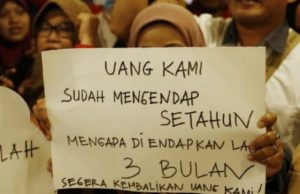 UANG KAMI
SUDAH MENGENDAP
SETAHUN
MENGAPA DI ENDAPKAN LA
3 BULAN
SEGERA KEMBALIKAN UANG KAMI
LAH